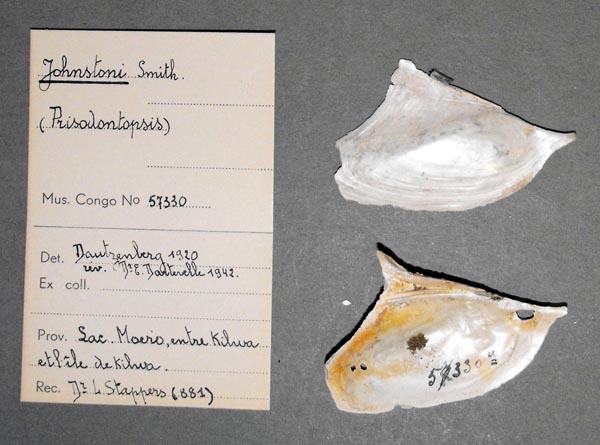 Johnstoni Smith.
(Prisodontopsis)
Mus. Congo No 57330
Det. Dautzenberg 1920
rev. Dr E. Dartevelle 1942.
Ex coll.
Prov. Lac Moero, entre Kilwa
et l'île de Kilwa.
Rec. Dr L. Stappers (881)
57330